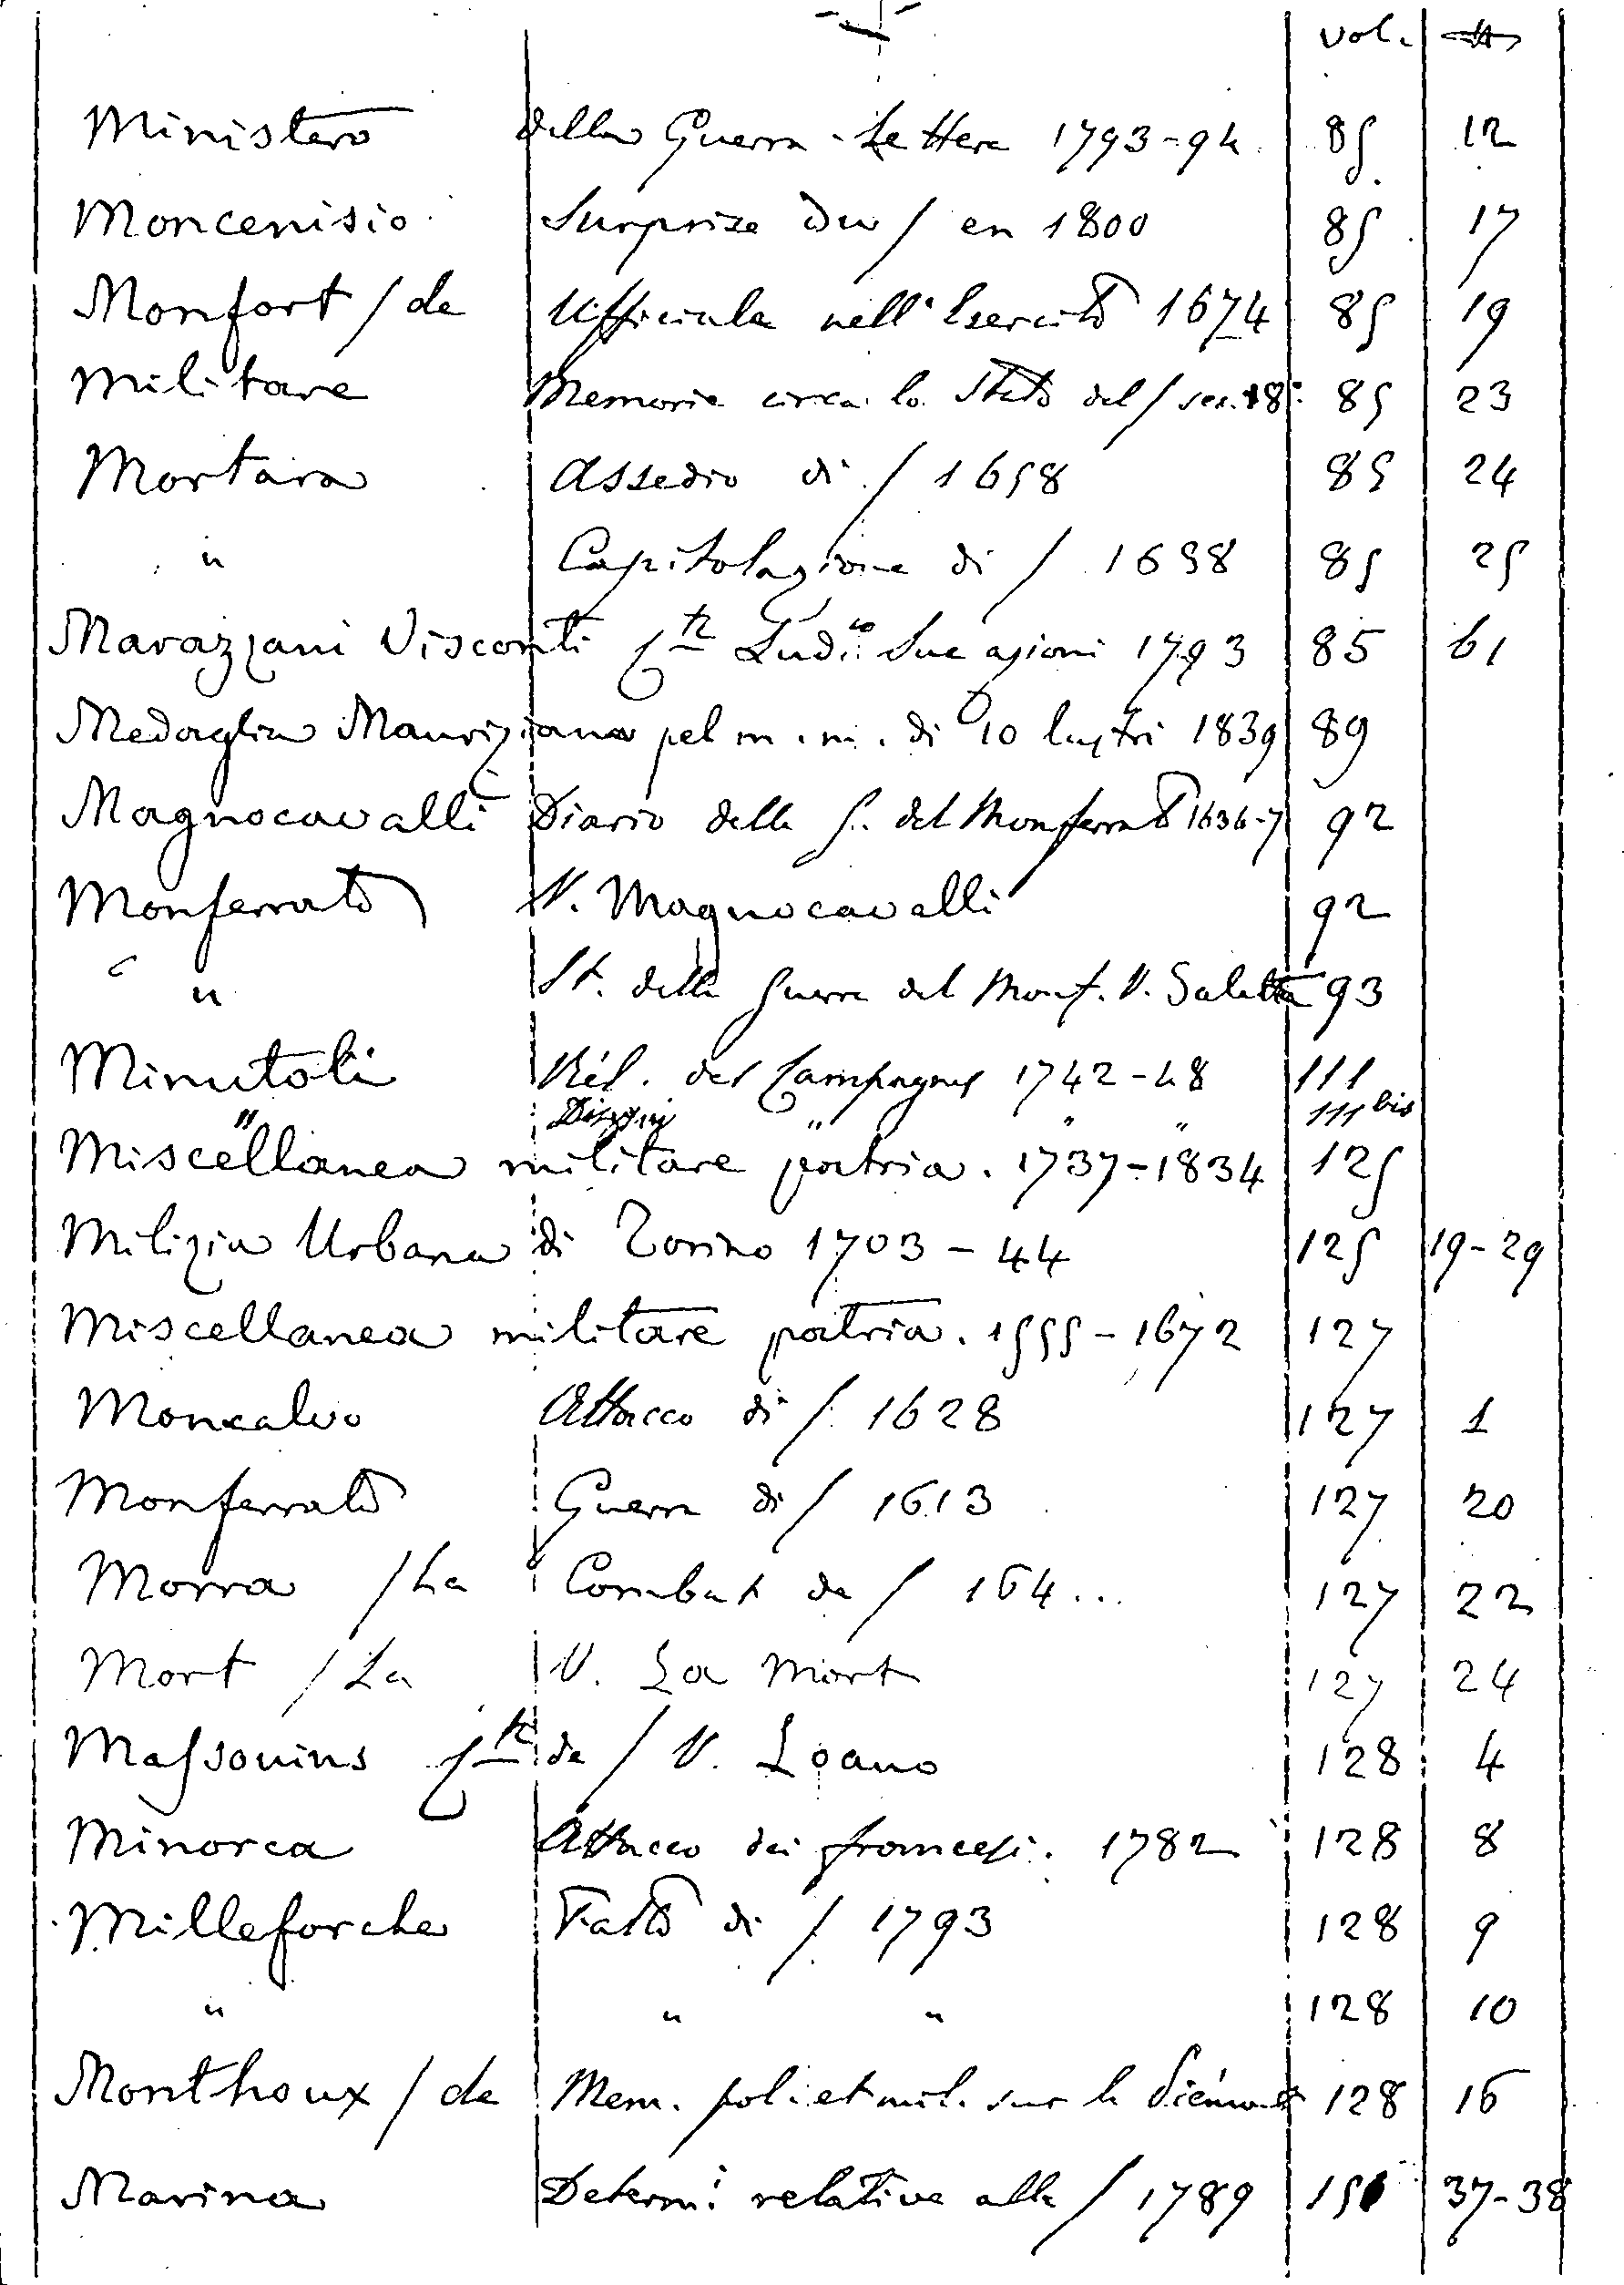 vol. N
Ministero della Guerra - Lettere 1793-94. 85 12
Moncenisio Surprise du / en 1800 85 17
Monfort / de Ufficiale nell'Esercito 1674 85 19
Militare Memorie circa lo Stato del / sec. 18° 85 23
Mortara Assedio di / 1658 85 24
" Capitolazione di / 1658 85 25
Marazzani Visconti Cte Ludco Sue azioni 1793 85 61
Medaglia Mauriziana pel m. m. di 10 lustri 1839 89
Magnocavalli Diario della G. del Monferrato 1636-7 92
Monferrato V. Magnocavalli 92
" St. delle Guerre del Monf. V. Saletta 93
Minutoli Rél. des Campagnes 1742-48 111
" Disegni " " " 111 bis
Miscellanea militare patria. 1737-1834 125
Milizia Urbana di Torino 1703-44 125 19-29
Miscellanea militare patria. 1555-1672 127
Moncalvo Attacco di / 1628 127 1
Monferrato Guerra di / 1613 127 20
Morra / La Combat de / 164... 127 22
Mort / La V. La Mort 127 24
Massouins Cte de / V. Loano 128 4
Minorca Attacco dei francesi. 1782 128 8
Milleforche Fatto di / 1793 128 9
" " " 128 10
Monthoux / de Mem. pol. et mil. sur le Piémont 128 16
Marina Determ: relative alla / 1789 151 37-38